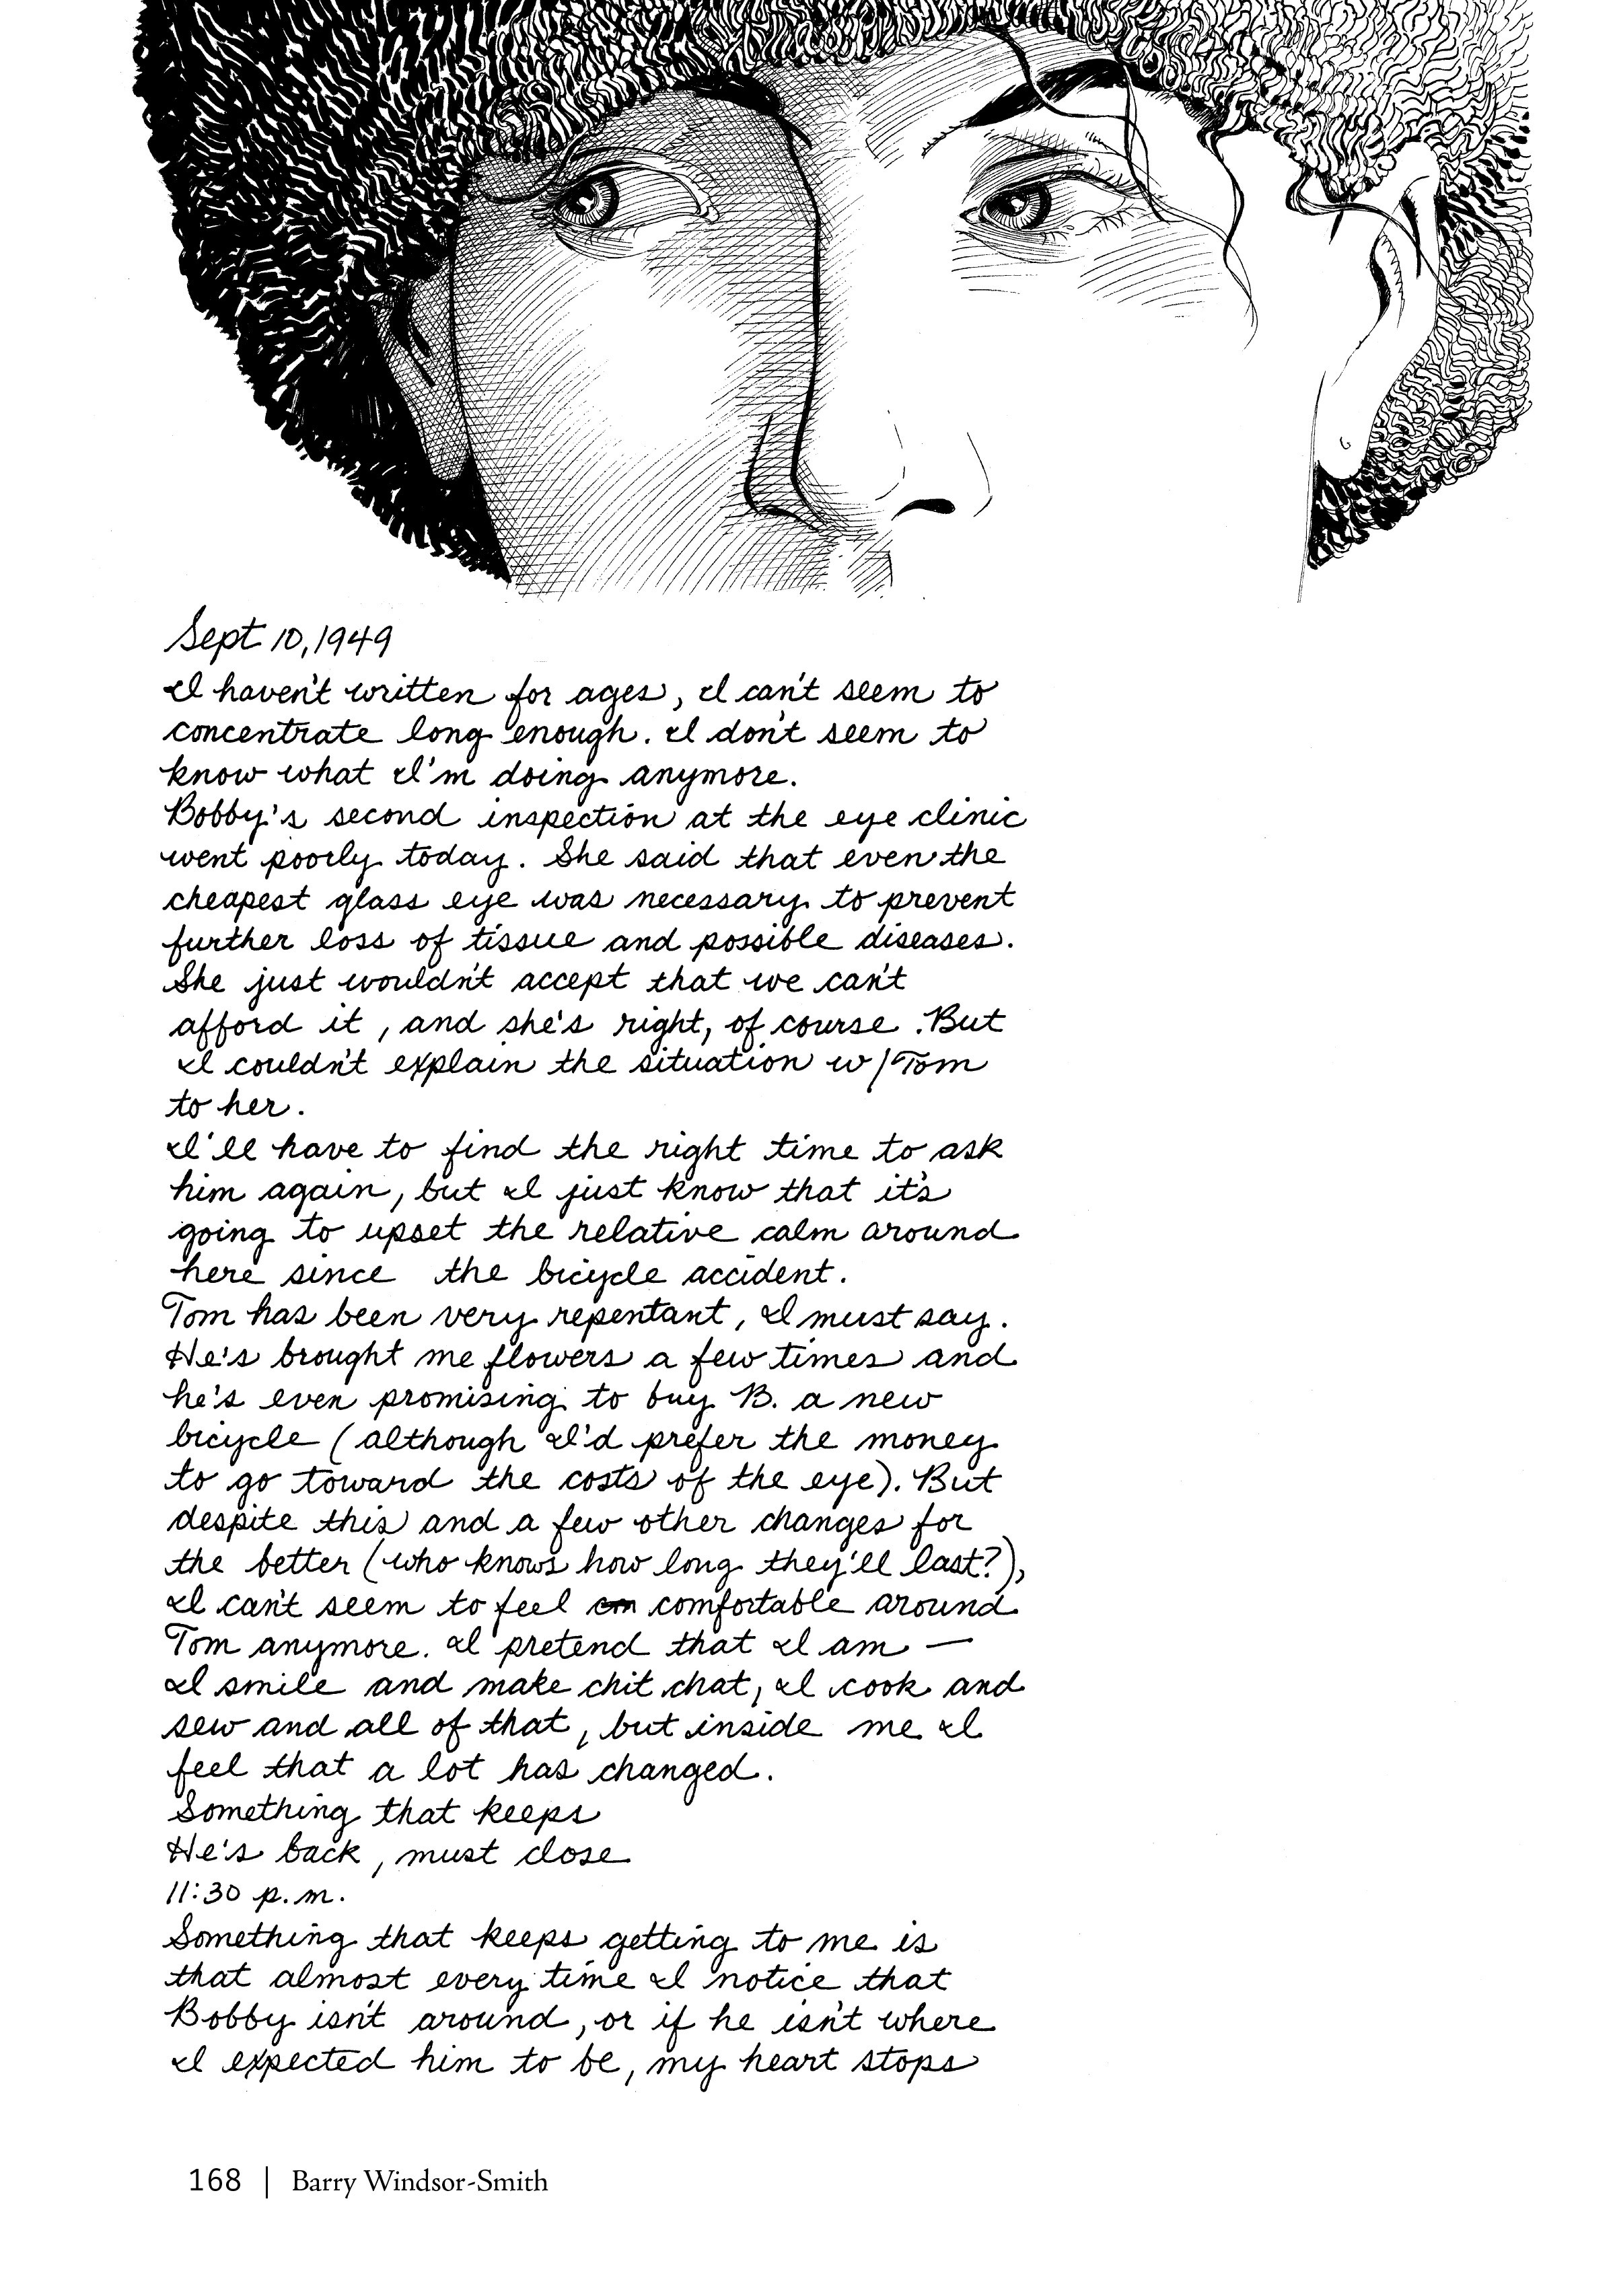 Sept 10, 1949
I haven't written for ages, I can't seem to
concentrate long enough. I don't seem to
know what I'm doing anymore.
Bobby's second inspection at the eye clinic
went poorly today. She said that even the
cheapest glass eye was necessary to prevent
further loss of tissue and possible diseases.
She just wouldn't accept that we can't
afford it, and she's right, of course. But
I couldn't explain the situation w/Tom
to her.
I'll have to find the right time to ask
him again, but I just know that it's
going to upset the relative calm around
here since the bicycle accident.
Tom has been very repentant, I must say.
He's brought me flowers a few times and
he's even promising to buy B. a new
bicycle (although I'd prefer the money
to go toward the costs of the eye). But
despite this and a few other changes for
the better (who knows how long they'll last?),
I can't seem to feel com comfortable around
Tom anymore. I pretend that I am —
I smile and make chit chat, I cook and
sew and all of that, but inside me I
feel that a lot has changed.
Something that keeps
He's back, must close
11:30 p.m.
Something that keeps getting to me is
that almost every time I notice that
Bobby isn't around, or if he isn't where
I expected him to be, my heart stops
168 | Barry Windsor-Smith